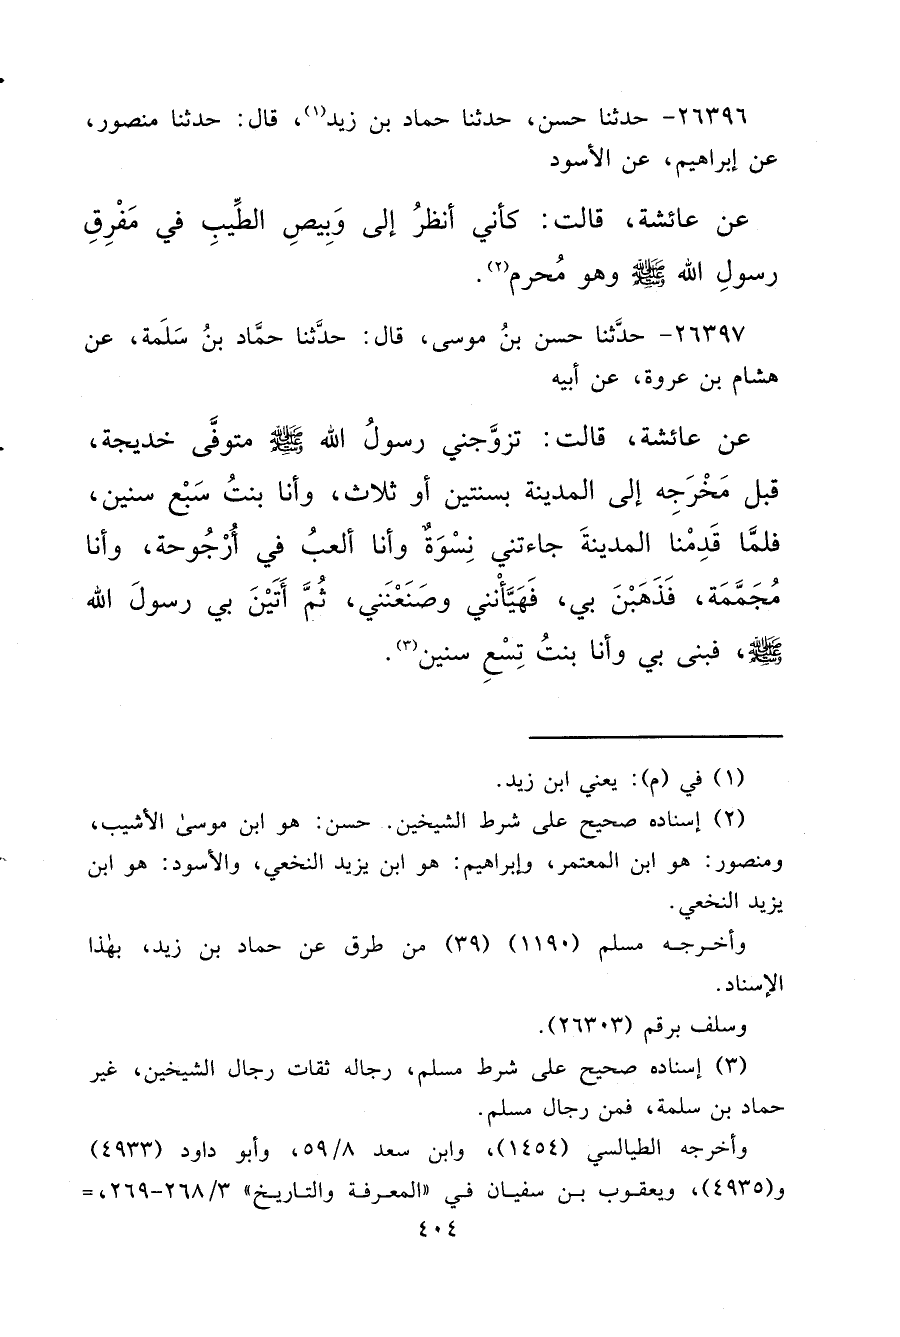 ٢٦٣٩٦- حدثنا حسن، حدثنا حماد بن زيد(١)، قال: حدثنا منصور،
عن إبراهيم، عن الأسود
عن عائشة، قالت: كأني أنظرُ إلى وَبِيصِ الطِّيبِ في مَفْرِقِ
رسولِ الله ﷺ وهو مُحرم(٢).
٢٦٣٩٧- حدَّثنا حسن بنُ موسى، قال: حدَّثنا حمَّاد بنُ سَلَمة، عن
هشام بن عروة، عن أبيه
عن عائشة، قالت: تزوَّجني رسولُ الله ﷺ متوفَّى خديجة،
قبل مَخْرَجِه إلى المدينة بسنتين أو ثلاث، وأنا بنتُ سَبْع سنين،
فلمَّا قَدِمْنا المدينةَ جاءتني نِسْوَةٌ وأنا ألعبُ في أُرْجُوحة، وأنا
مُجَمَّمَة، فَذَهَبْنَ بي، فَهَيَّأْنني وصَنَعْنَني، ثُمَّ أَتَيْنَ بي رسولَ الله
ﷺ، فبنى بي وأنا بنتُ تِسْعِ سنين(٣).
(١) في (م): يعني ابن زيد.
(٢) إسناده صحيح على شرط الشيخين. حسن: هو ابن موسىٰ الأشيب،
ومنصور: هو ابن المعتمر، وإبراهيم: هو ابن يزيد النخعي، والأسود: هو ابن
يزيد النخعي.
وأخرجه مسلم (١١٩٠) (٣٩) من طرق عن حماد بن زيد، بهٰذا
الإسناد.
وسلف برقم (٢٦٣٠٣).
(٣) إسناده صحيح على شرط مسلم، رجاله ثقات رجال الشيخين، غير
حماد بن سلمة، فمن رجال مسلم.
وأخرجه الطيالسي (١٤٥٤)، وابن سعد ٥٩/٨، وأبو داود (٤٩٣٣)
و(٤٩٣٥)، ويعقوب بن سفيان في «المعرفة والتاريخ» ٢٦٨/٣-٢٦٩، =
٤٠٤